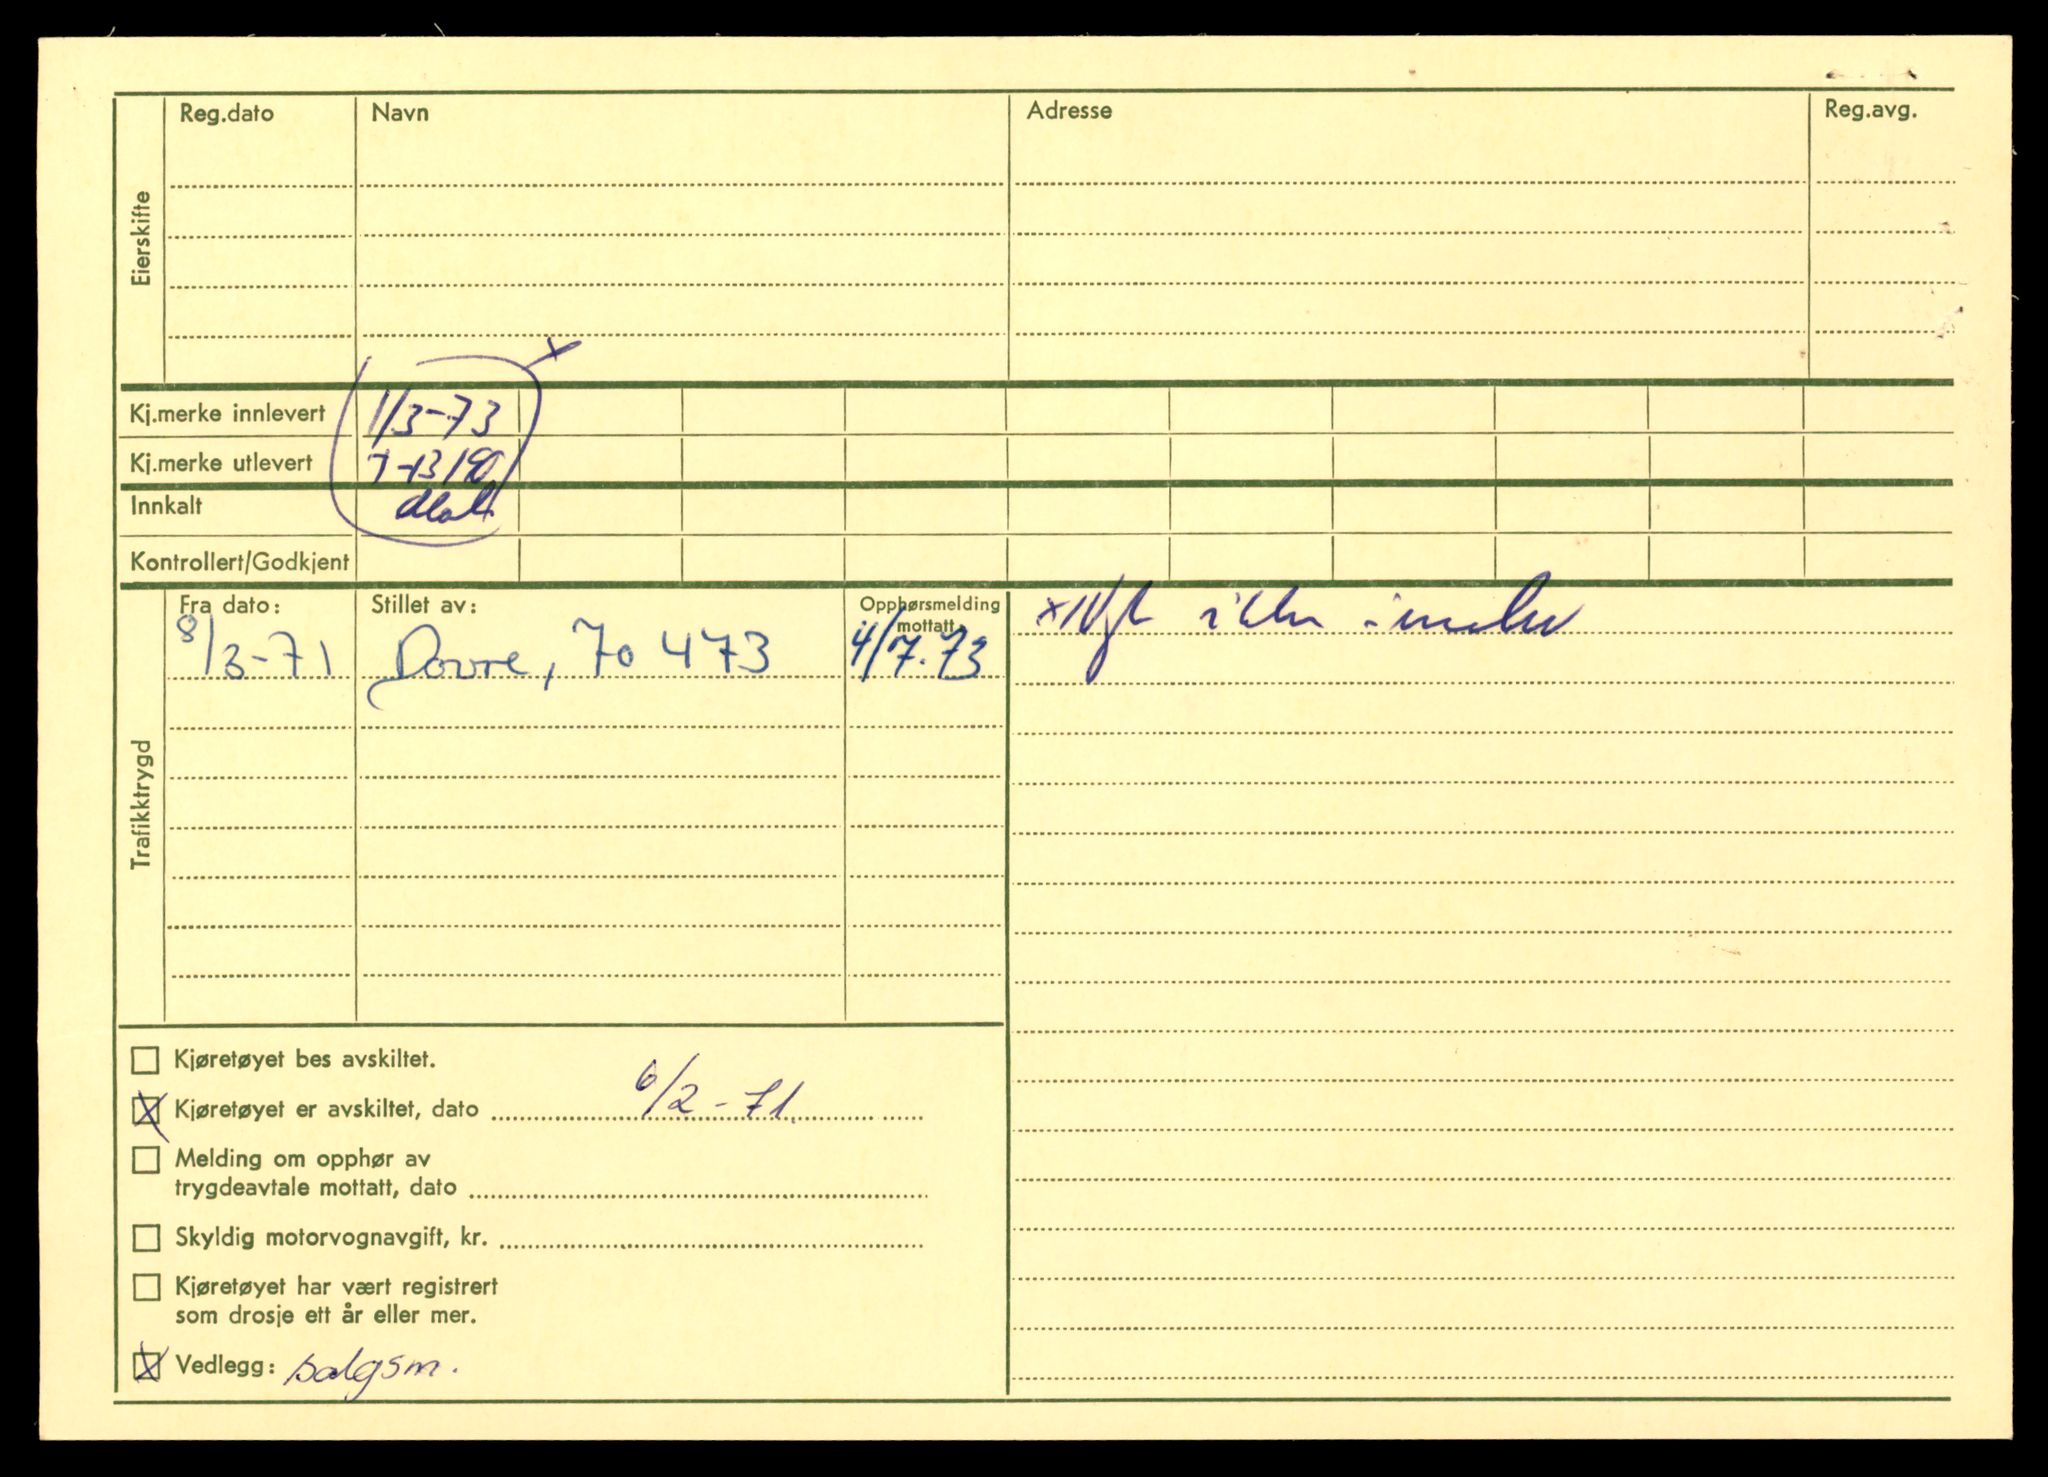 Eierskifte
Reg.dato Navn Adresse Reg.avg.
x
Kj.merke innlevert 1/3-73
Kj.merke utlevert
Innkalt
Kontrollert/Godkjent
Trafikktrygd
Fra dato: Stillet av: Opphørsmelding mottatt
8/3-71 Dovre, 70 473 4/7.73
x
Kjøretøyet bes avskiltet.
X Kjøretøyet er avskiltet, dato 6/2-71.
Melding om opphør av
trygdeavtale mottatt, dato
Skyldig motorvognavgift, kr.
Kjøretøyet har vært registrert
som drosje ett år eller mer.
X Vedlegg: salgsm.